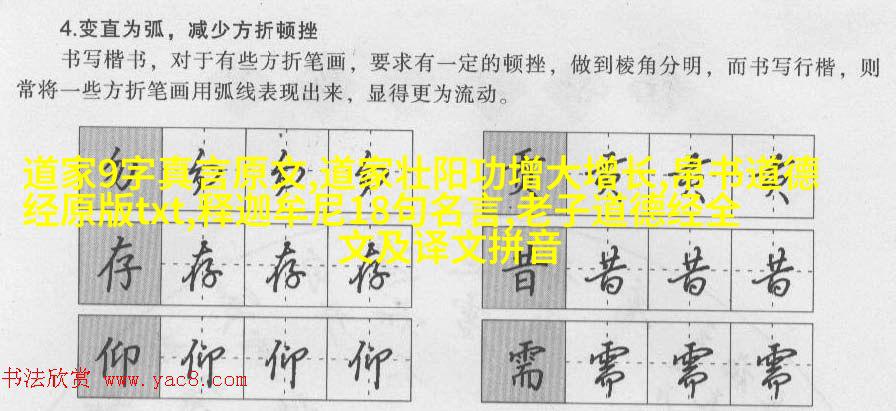 4.变直为弧，减少方折顿挫
书写楷书，对于有些方折笔画，要求有一定的顿挫，做到棱角分明，而书写行楷，则
常将一些方折笔画用弧线表现出来，显得更为流动。
道家9字真言原文,道家壮阳功增大增长,帛书道德
经原版txt,释迦牟尼18句名言,老子道德经全
文及译文拼音
存 存 存 存
昔 昔 昔 昔
仰 仰 仰 仰
需 需 需 需
书法欣赏 www.yac8.com